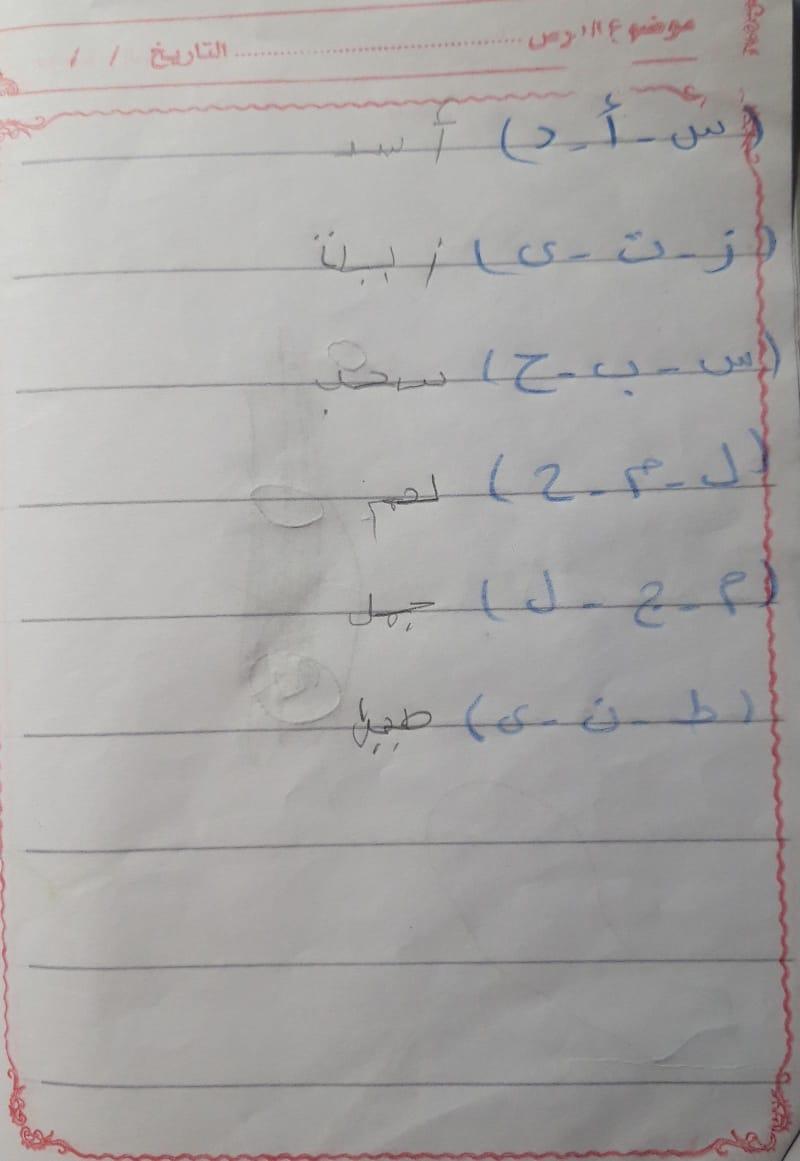 موضوع الدرس ........................ التاريخ / /
(س - أ - د) أسد
(ز - ت - ى)
(س - ب - ح) سحب
(ل - م - ح) لحم
(م - ج - ل) جمل
(ط - ن - ى)